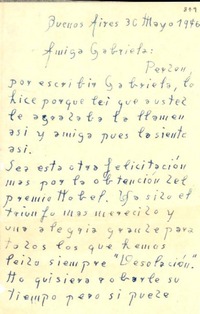 819
Buenos Aires 30 Mayo 1946
Amiga Gabriela:
Perdon
por escribir Gabriela, lo
hice porque lei que a usted
le agradaba la llamen
asi y amiga pues la siento
asi.
Sea esta otra felicitación
mas por la obtención del
premio Nobel. Ha sido el
triunfo mas merecido y
una alegria grande para
todos los que hemos
leido siempre "Desolación".
No quisiera robarle su
tiempo pero si puede